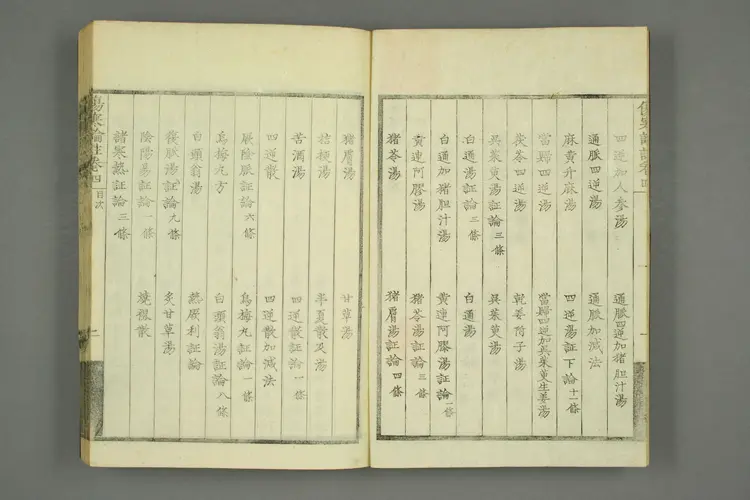 四逆加人參湯
通脈四逆加猪胆汁湯
通脈四逆湯
通脈加減法
麻黄升麻湯
四逆湯証下論十一條
當歸四逆湯
當歸四逆加吳茱萸生姜湯
茯苓四逆湯
乾姜附子湯
吳茱萸湯証論三條
吳茱萸湯
白通湯証論三條
白通湯
白通加猪胆汁湯
黄連阿膠湯証論一條
黄連阿膠湯
猪苓湯証論三條
猪苓湯
猪膚湯証論四條
傷寒論註卷四
猪膚湯
甘草湯
桔梗湯
半夏散及湯
苦酒湯
四逆散証論一條
四逆散
四逆散加減法
厥陰脈証論六條
烏梅丸証論一條
烏梅丸方
白頭翁湯証論八條
白頭翁湯
熱厥利証論
復脈湯証論九條
炙甘草湯
陰陽易証論一條
燒裩散
諸寒熱証論三條
傷寒論註卷四
目次
二